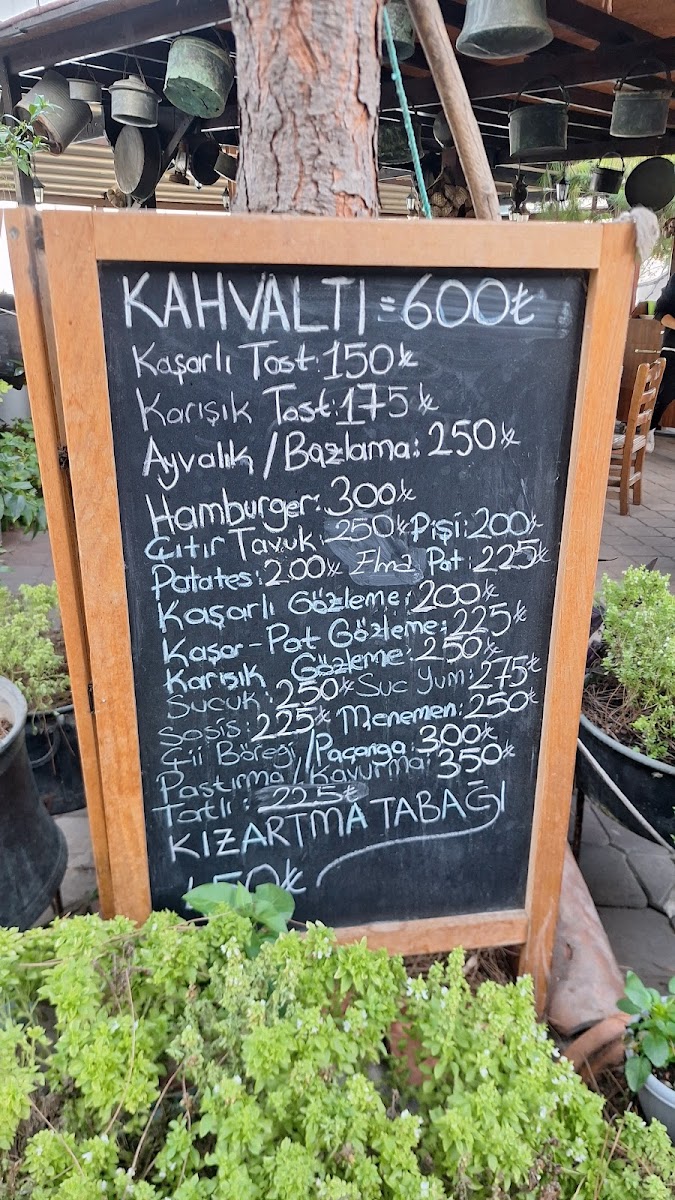 KAHVALTI = 600₺
Kaşarlı Tost: 150₺
Karışık Tost: 175₺
Ayvalık / Bazlama: 250₺
Hamburger: 300₺
Çıtır Tavuk: 250₺ Pişi: 200₺
Patates: 200₺ Elma Pat: 225₺
Kaşarlı Gözleme: 200₺
Kaşar-Pat Gözleme: 225₺
Karışık Gözleme: 250₺
Sucuk: 250₺ Suc Yum: 275₺
Sosis: 225₺ Menemen: 250₺
Çii Böreği / Paçanga: 300₺
Pastırma / Kavurma: 350₺
Tatlı: 225₺
KIZARTMA TABAĞI
50₺